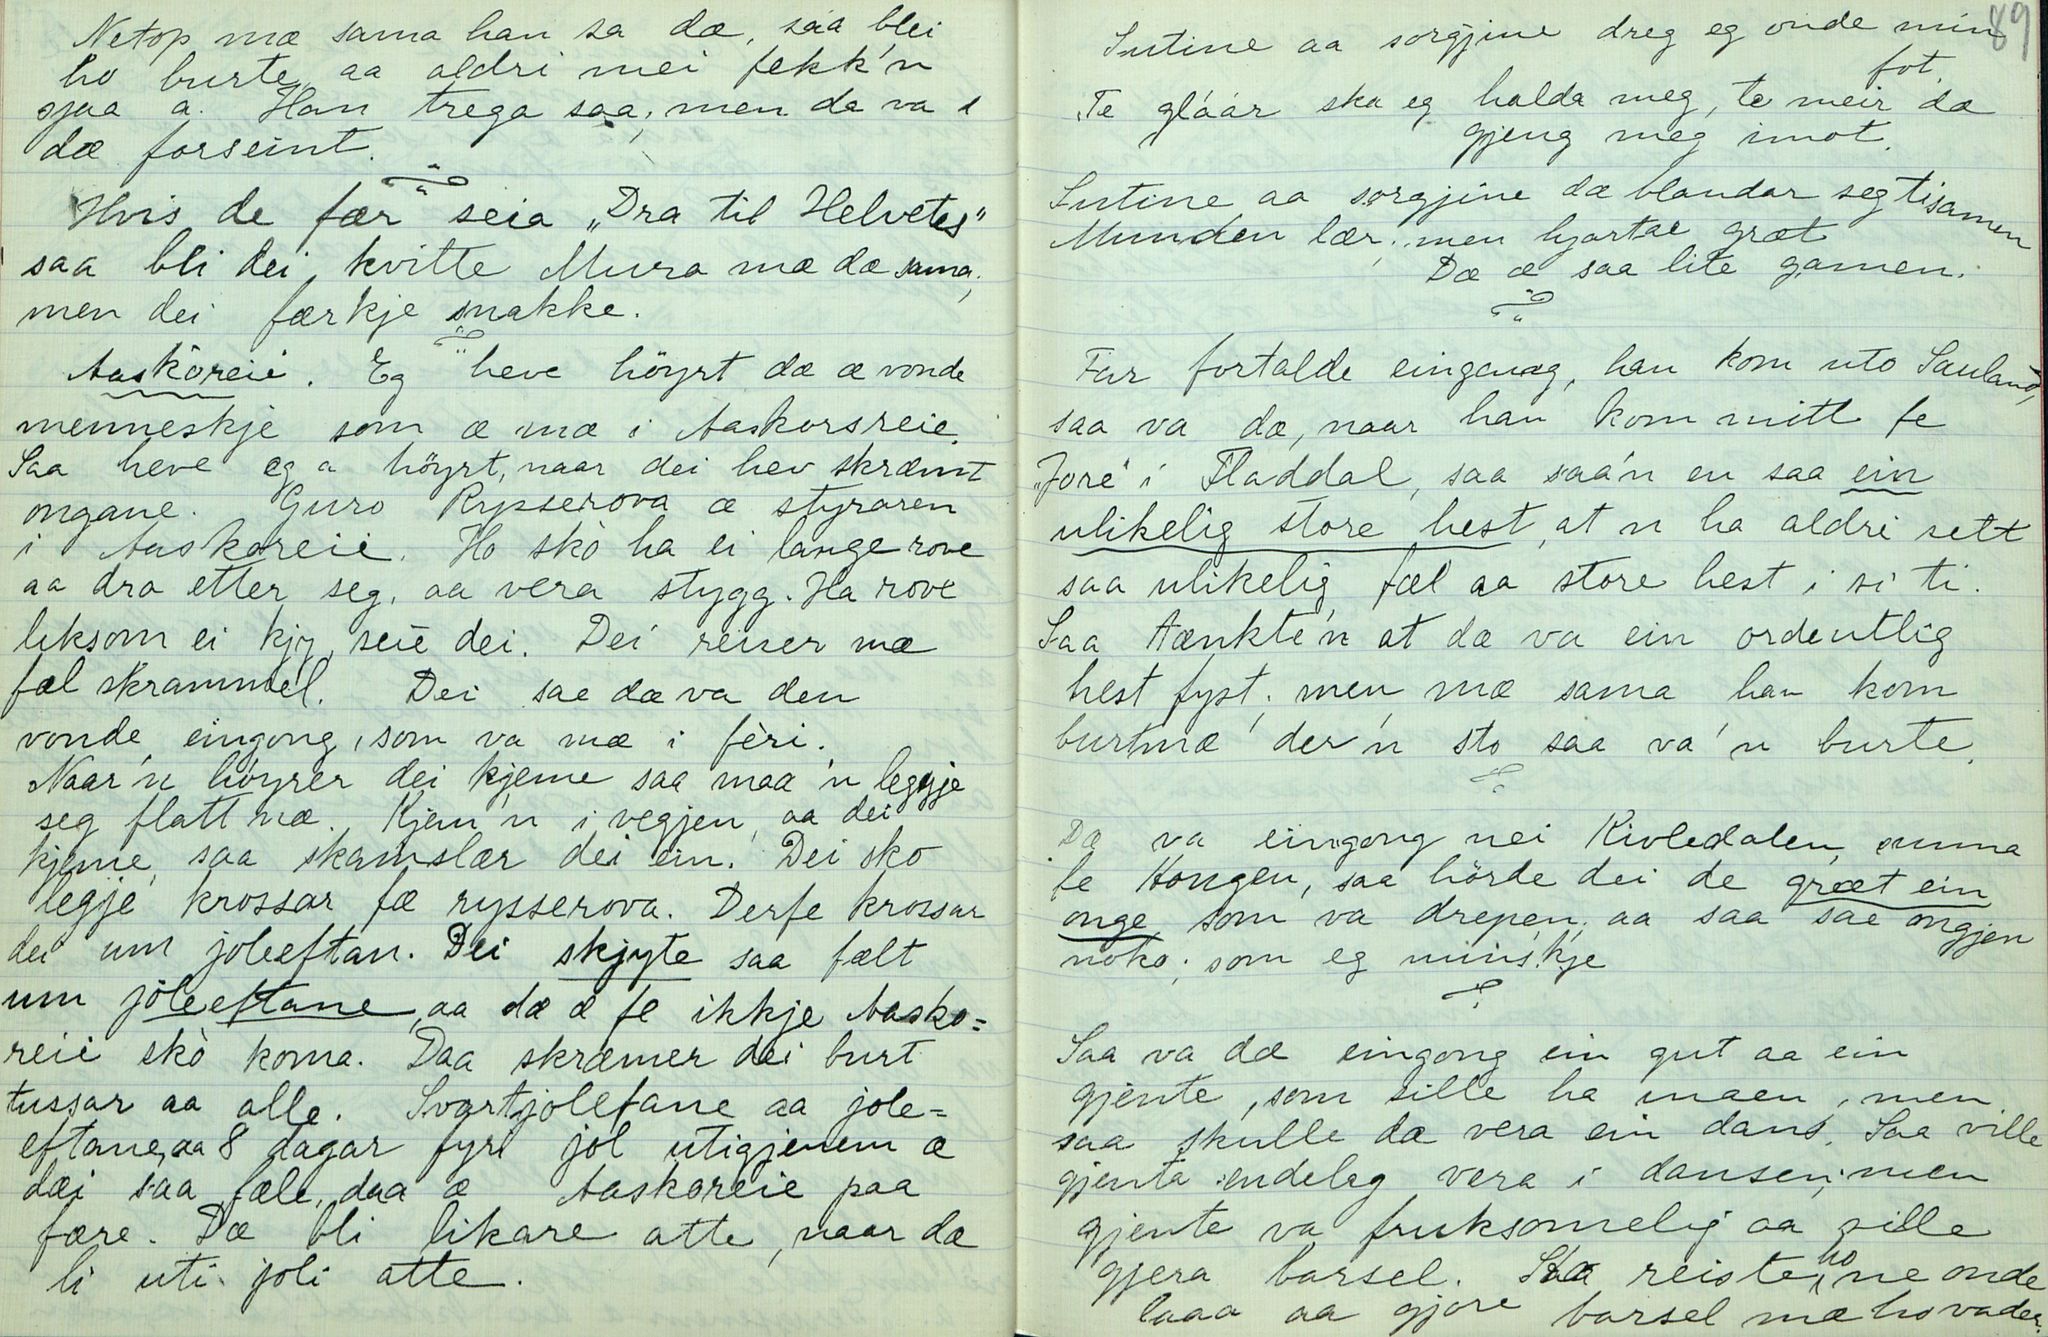 Netop mæ sama han sa dæ, saa blei
ho burte, aa aldri mei fekk'n
sjaa a. Han trega saa; men da va i
dæ forseint.
Hvis de fær seia „Dra til Helvetes"
saa bli dei kvitte Mura mæ dæ sama,
men dei færkje snakke.
Aaskòreii. Eg heve höyrt dæ æ vonde
menneskje som æ mæ i Aaskorsreie.
Saa heve eg a höyrt, naar dei hev skræmt
ongane. Guro Rysserova æ styraren
i Aaskoreii. Ho skò ha ei lange rove
aa dra etter seg, aa vera stygg. Ha rove
liksom ei kjy, seie dei. Dei reiser mæ
fæl skrammel. Dei sae dæ va den
vonde eingong, som va mæ i fèri.
Naar'n höyrer dei kjeme saa maa'n leggje
seg flatt næ. Kjem'n i vegjen, aa dei
kjeme, saa skamslær dei ein. Dei sko
legje krossar fæ rysserova. Derfe krossar
dei um joleeftan. Dei skjyte saa fælt
um joleeftane, aa dæ æ fe ikkje Aasko=
reii skò koma. Daa skræmer dei burt
tussar aa alle. Svartjolefane aa jole=
eftane, aa 8 dagar fyri jol utigjenem æ
dæi saa fæle, daa æ Aaskoreie paa
fære. Dæ bli likare atte, naar dæ
li uti joli atte.
89
Sutine aa sorgjine dreg eg onde min
fot.
Te glaar ska eg halda meg, te meir dæ
gjeng meg imot.
Sutine aa sorgjine dæ blandar seg tisamen
Munden lær; men hjartae græt
Dæ æ saa lite gamen.
Far fortalde eingang, han kom uto Sauland,
saa va dæ, naar han kom mitt fe
„Jore" i Fladdal, saa saa'n en saa ein
ulikelig store hest, at'n ha aldri sett
saa ulikelig fæl aa store hest i si ti.
Saa tænkte'n at dæ va ein ordentlig
hest fyst; men mæ sama han kom
burtmæ der'n sto saa va'n burte.
Dæ va eingong nei Kivledalen, sunna
fe Kongen, saa hörde dei de græt ein
onge, som va drepen, aa saa sae ongjen
noko; som eg minskje
Saa va dæ eingong ein gut aa ein
gjente, som sille ha inaen, men
saa skulle dæ vera ein dans. Saa ville
gjenta endeleg vera i dansen; men
gjente va fruksomelig aa sille
gjera barsel. Saa reiste ho ne onde
laaa aa gjore barsel mæ ho va der.